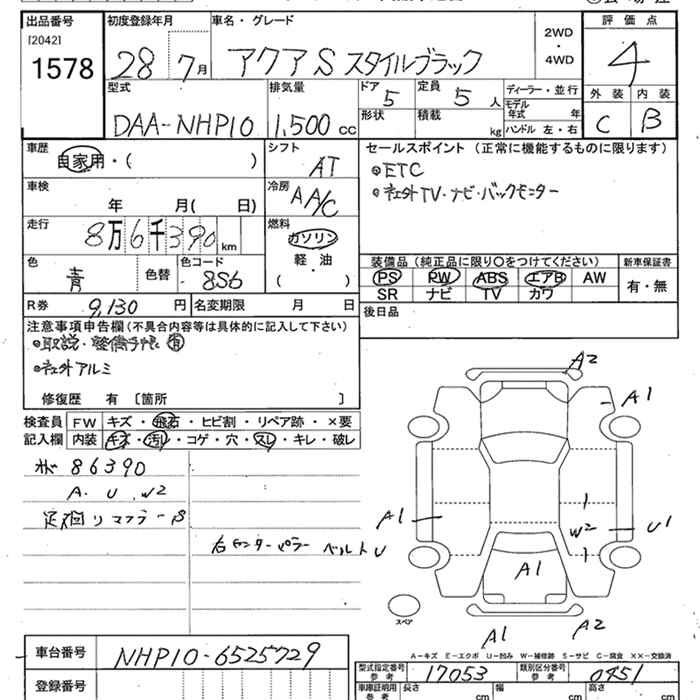 出品番号 初度登録年月 車名・グレード 2WD・4WD 評価点
[2042]
1578 28 7月 アクアS スタイルブラック 4
型式 排気量 ドア 5 定員 5人 ディーラー・並行 外装 内装
DAA-NHP10 1,500cc 形状 積載 kg モデル年式 年 ハンドル 左・右 C B
車歴 シフト セールスポイント(正常に機能するものに限ります)
自家用・( ) AT ◎ETC
車検 冷房 ◎社外TV・ナビ・バックモニター
年 月( 日) AA/C
走行 燃料
8万6千390km ガソリン
色 色替 色コード 軽・油 装備品(純正品に限り〇をつけてください) 新車保証書
青 8S6 ( ) PS PW ABS エアB AW 有・無
SR ナビ TV カワ
R券 9,130円 名変期限 月 日 後日品
注意事項申告欄(不具合内容等は具体的に記入して下さい)
◎取説・整備手帳 有
◎社外アルミ
修復歴 有 〔箇所 〕
検査員 FW キズ・飛石・ヒビ割・リペア跡・×要
記入欄 内装 キズ・汚レ・コゲ・穴・スレ・キレ・破レ
86390
A. U. W2
マフラーS
右センターピラー ベルトU
A2
A1
A1
W2
U1
A1
スペア
A1
A2
A-キズ E-エクボ U-凹み W-補修跡 S-サビ C-腐食 XX-交換済
車台番号 NHP10-6525729
型式指定番号 参考 17053 類別区分番号 参考 0451
登録番号
車庫証明用 参考 長さ cm 幅 cm 高さ cm